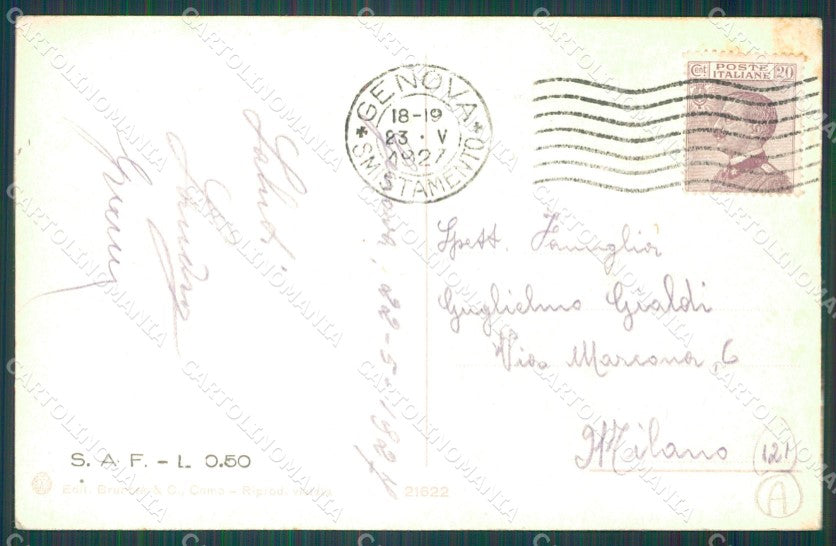 GENOVA
18-19
23 · V
1927
SMISTAMENTO
Cent POSTE ITALIANE 20
Saluti
Gianni
22-5-1927
Spett. Famiglia
Guglielmo Gialdi
Via Marcona, 6
Milano
121
A
S. A. F. - L. 0.50
Edit. & C., Como - Riprod. vietata
21622
CARTOLINOMANIA